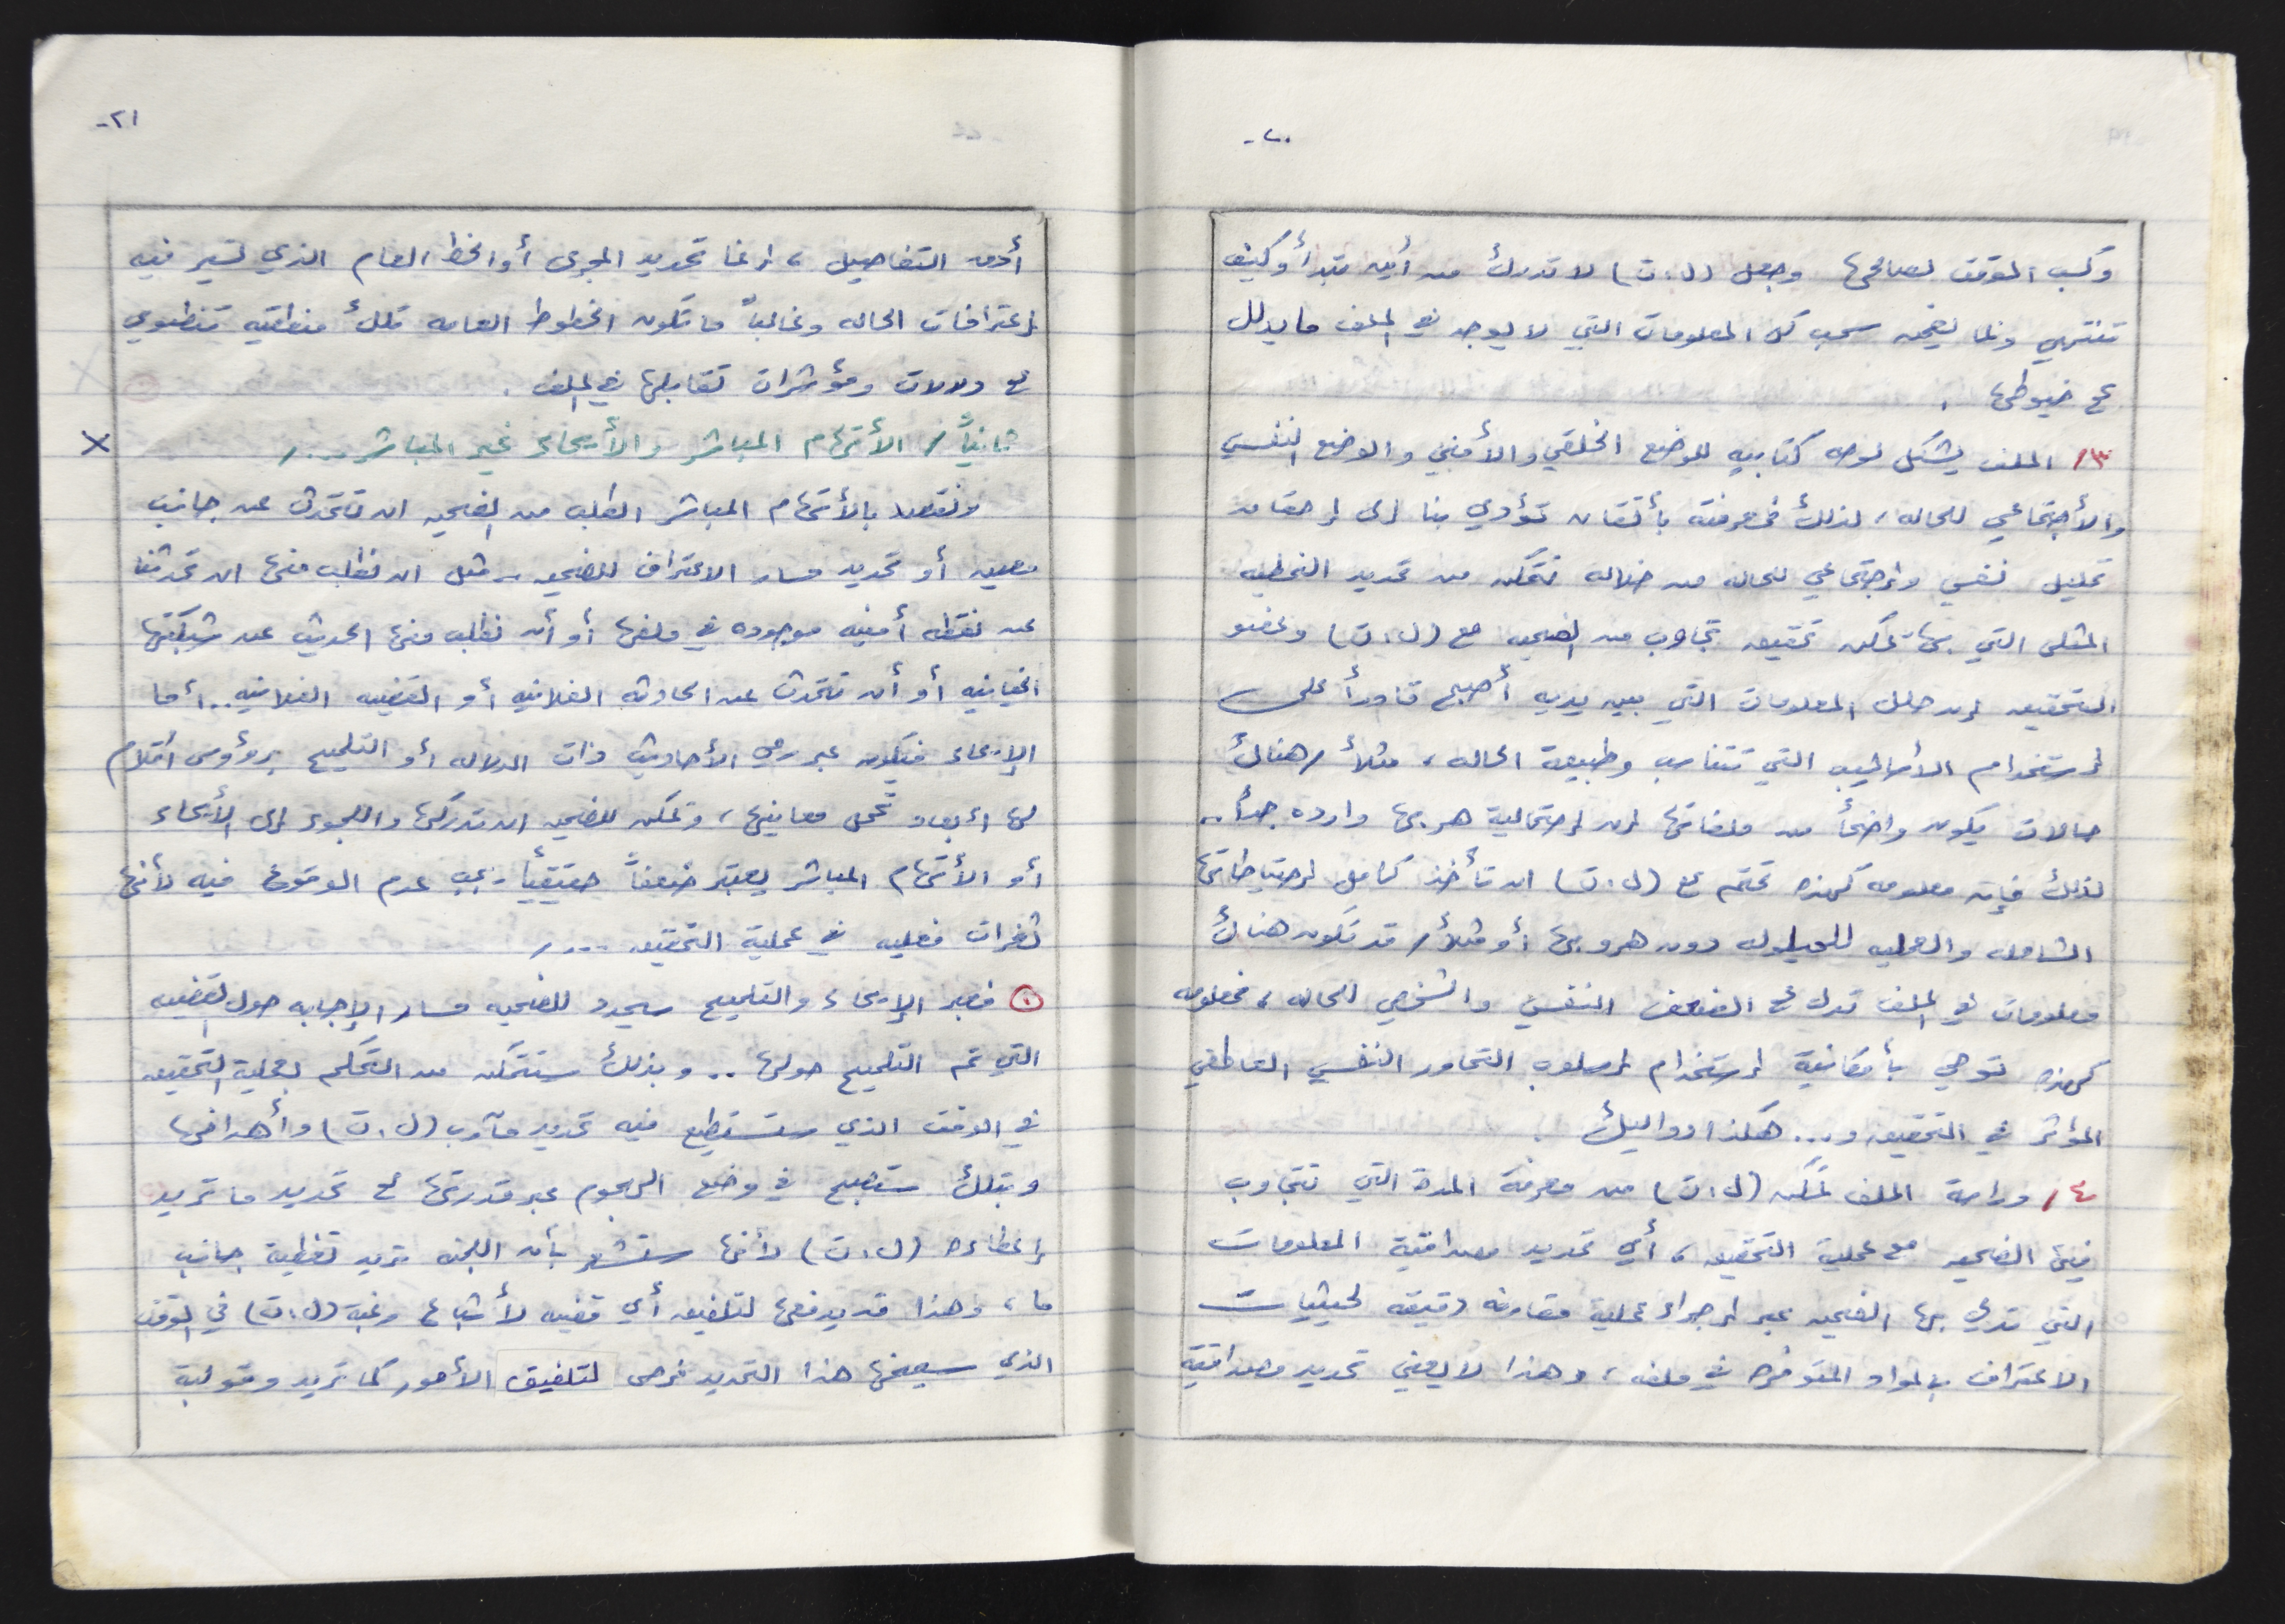 ٢٠-
وكسب الموقف لصالحها وجعل (ل.ت) لا تدرك من أين تبدأ وكيف
تنتهي ونما يضحه سحب كل المعلومات التي لا يوجد في الملف ما يدلل
على خيوطها .
٣/ الملف يشكل لوحه كتابيه للوضع الخلقي والأمني والوضع النفسي
والأجتماعي للحاله، لذلك فمعرفته بأتقان تؤدي بنا إلى إحقاق
تحليل نفسي وإجتماعي للحاله من خلاله نتمكن من تحديد التخطيه
المثلى التي بها يمكن تحقيق تجاوب من الضحيه مع (ل.ت) وعضو
التحقيق إن حلل المعلومات التي بين يديه أصبح قادراً على
إستخدام الأساليب التي تتناسب وطبيعة الحاله، مثلاً/ هنالك
حالات يكون واضحاً من ملفاتها إن إحتمالية هربها وارده جداً..
لذلك فإن معلومه كهذه تحتم على (ل.ت) ان تأخذ كامل إحتياطاتها
الشامله والعمليه للحيلوله دون هروبها أو مثلاً/ قد تكون هنالك
معلومات في الملف تدل على الضعف النفسي والشخصي للحاله، فمعلومه
كهذه توحي بأمكانية إستخدام إسلوب التحاور النفسي العاطفي
المؤثر في التحقيق و... هكذا دواليك .
٤/ دراسة الملف تمكن (ل.ت) من معرفة المدة التي تتجاوب
فيها الضحيه مع عملية التحقيق، أي تحديد مصداقية المعلومات
التي تدلي بها الضحيه عبر إجراء عملية مقارنه دقيقه لحيثيات
الاعتراف بالمواد المتوفره في ملفه، وهذا لا يعني تحديد مصداقية
٢١-
أدق التفاصيل، إنما تحديد المجرى أو الخط العام الذي تسير فيه
إعترافات الحاله وغالباً ما تكون الخطوط العامه تلك منطقيه تنطوي
على دلالات ومؤشرات تقابلها في الملف .
ثانياً/ الأتهام المباشر والأيحاء غير المباشر.../
ونقصد بالأتهام المباشر الطلب من الضحيه ان تتحدث عن جانب
معين أو تحديد مسار الاعتراف للضحيه، مثل ان نطلب منها ان تحدثنا
عن نقطه أمنيه موجوده في ملفها أو أن نطلب منها الحديث عن شبكتها
الخيانيه أو أن تتحدث عن الحادثه الفلانيه أو القضيه الفلانيه.. أما
الإيحاء فيكون عبر رمي الأحاديث ذات الدلاله أو التلميح برؤوس اقلام
لها أبعاد تحمل معانيها، ويمكن للضحيه ان تدركها واللجوء إلى الأيحاء
أو الأتهام المباشر يعتبر ضعفاً حقيقياً يجب عدم الوقوع فيه لأنها
ثغرات فعليه في عملية التحقيق .../
١ فعبر الإيحاء والتلميح سيحدد للضحيه مسار الإجابه حول القضيه
التي تم التلميح حولها .. وبذلك ستتمكن من التحكم بعملية التحقيق
في الوقت الذي ستستطيع فيه تحديد مآرب (ل.ت) وأهدافها
وبتلك ستصبح في وضع الهجوم عبر قدرتها على تحديد ما تريد
إعطاءه (ل.ت) لأنها ستشعر بأن اللجنه تريد تغطية جانب
ما، وهذا قد يدفعها لتلفيق أي قضيه لأشباع رغبة (ل.ت) في الوقت
الذي سيمنحها هذا التحديد فرص لتلفيق الأمور كما تريد وقولبة